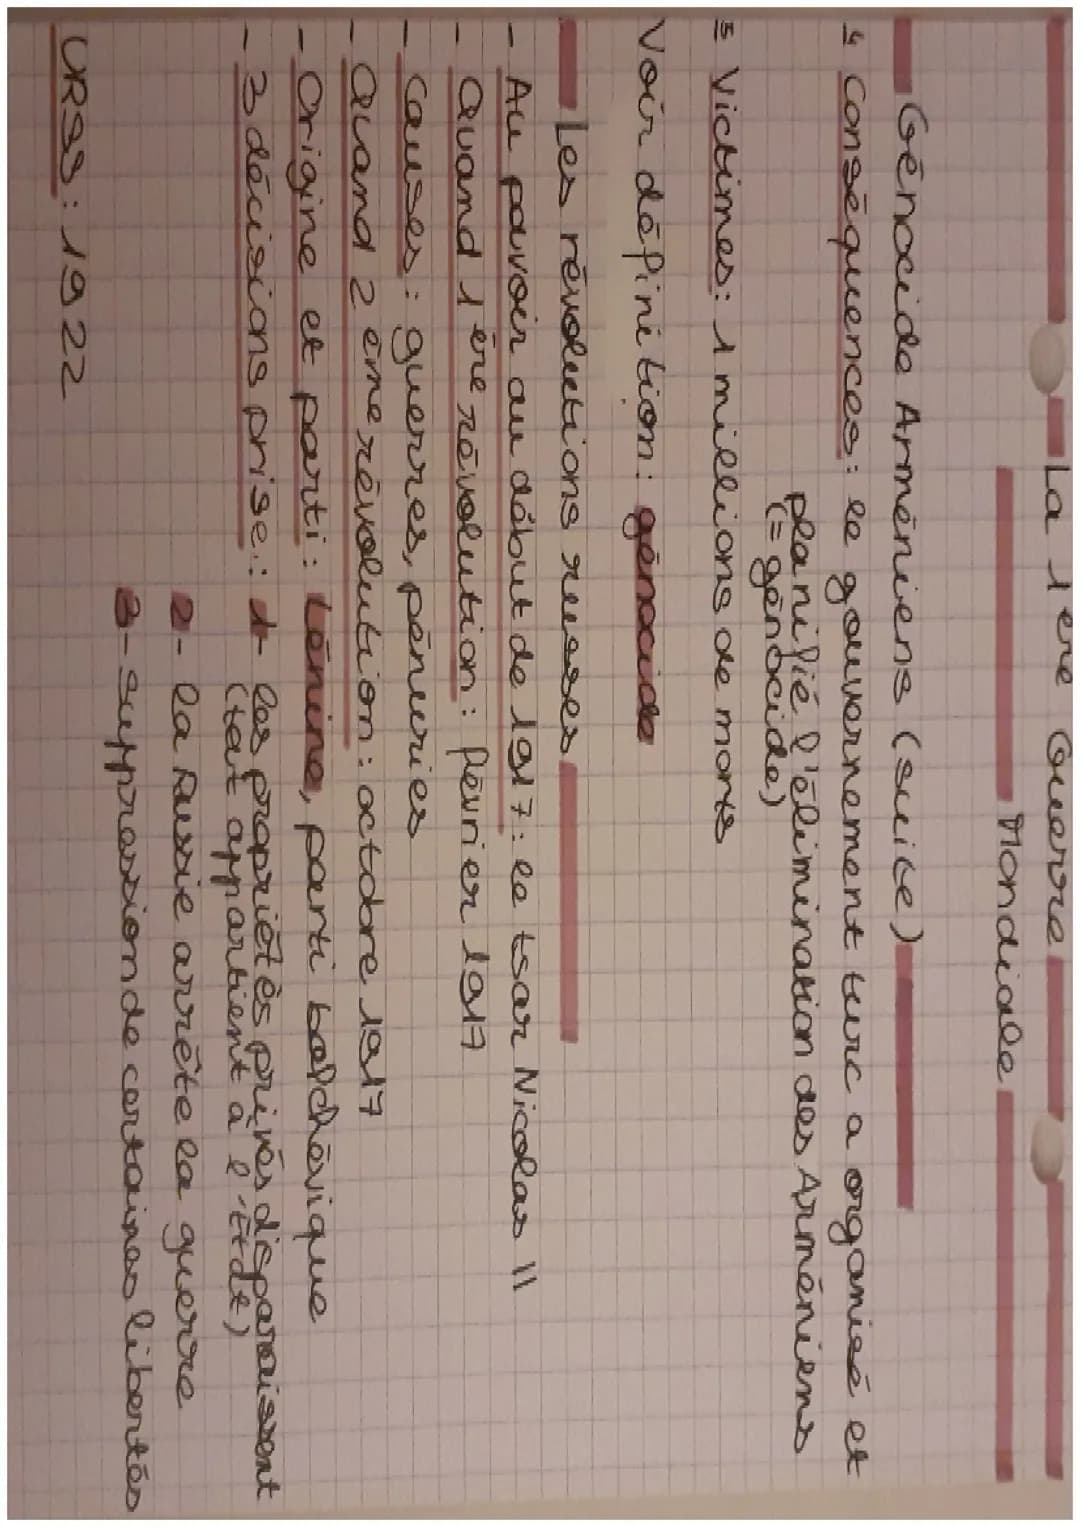 La 1ère Guerre
Mondiale
Génocide Arméniens (suite)
4 Conséquences : le gouvernement turc a organisé et
planifié l'élimination des Arméniens
(= génocide)
5 Victimes : 1 millions de morts
Voir définition : génocide
Les révolutions russes
- Au pavoir au début de 1917 : le tsar Nicolas II
- Quand 1ère révolution : février 1917
- Causes : guerres, pénuries
- Quand 2 ème révolution : octobre 1917
- Origine et parti : Lénine, parti bolchévique
- 3 décisions prise : 1- les propriétés privés disparaissent
(tout appartient à l'État)
2- la Russie arrête la guerre
3- suppression de certaines libertés
URSS : 1922